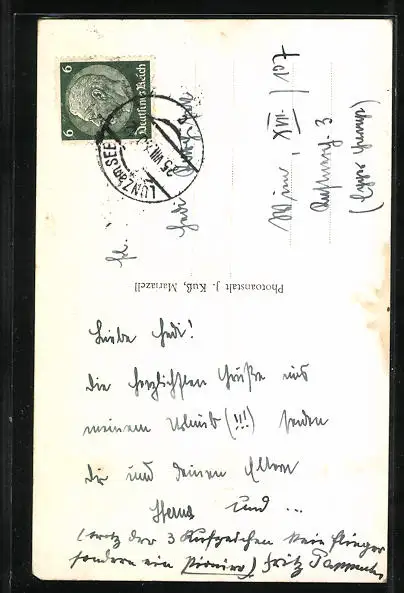 6 6
Deutsches Reich
LUNZ am SEE
Frl.
Hedi
Wien, XVII. / 107
3
Photoanstalt J. Kuß, Mariazell
Liebe Hedi!
Die herzlichsten Grüße aus
meinem Urlaub (!!!) senden
Dir und deinen Eltern
Hans und ...
(trotz der 3 Rufzeichen kein Flieger
sondern ein Pionier) Fritz